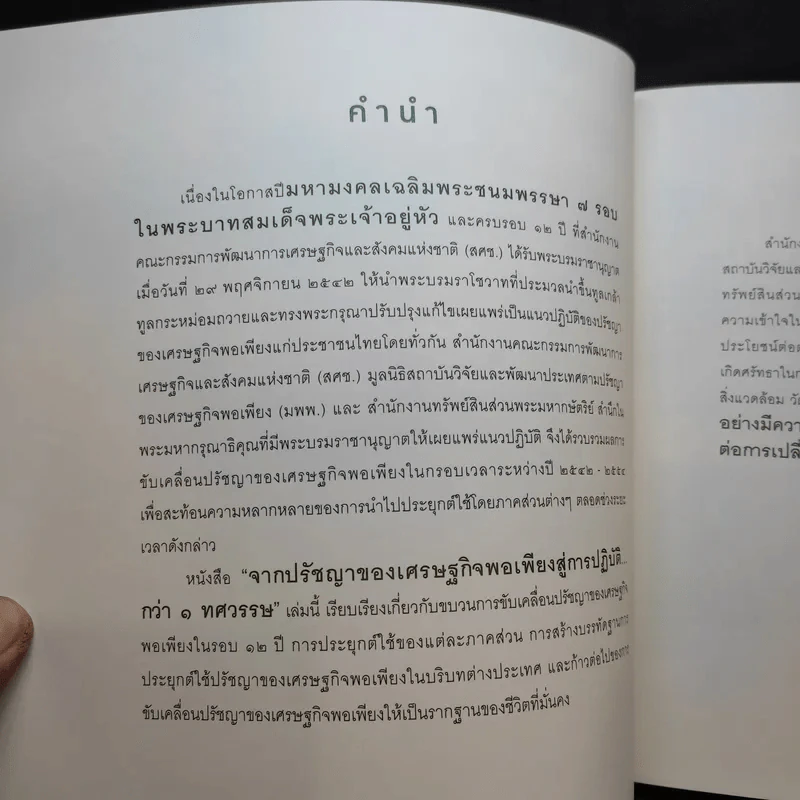 คำนำ
เนื่องในโอกาสปีมหามงคลเฉลิมพระชนมพรรษา ๗ รอบ
ในพระบาทสมเด็จพระเจ้าอยู่หัว และครบรอบ ๑๒ ปี ที่สำนักงาน
คณะกรรมการพัฒนาการเศรษฐกิจและสังคมแห่งชาติ (สศช.) ได้รับพระบรมราชานุญาต
เมื่อวันที่ ๒๙ พฤศจิกายน ๒๕๔๒ ให้นำพระบรมราโชวาทที่ประมวลนำขึ้นทูลเกล้า
ทูลกระหม่อมถวายและทรงพระกรุณาปรับปรุงแก้ไขเผยแพร่เป็นแนวปฏิบัติของปรัชญา
ของเศรษฐกิจพอเพียงแก่ประชาชนไทยโดยทั่วกัน สำนักงานคณะกรรมการพัฒนาการ
เศรษฐกิจและสังคมแห่งชาติ (สศช.) มูลนิธิสถาบันวิจัยและพัฒนาประเทศตามปรัชญา
ของเศรษฐกิจพอเพียง (มพพ.) และ สำนักงานทรัพย์สินส่วนพระมหากษัตริย์ สำนึกใน
พระมหากรุณาธิคุณที่มีพระบรมราชานุญาตให้เผยแพร่แนวปฏิบัติ จึงได้รวบรวมผลการ
ขับเคลื่อนปรัชญาของเศรษฐกิจพอเพียงในกรอบเวลาระหว่างปี ๒๕๔๒ - ๒๕๕๔
เพื่อสะท้อนความหลากหลายของการนำไปประยุกต์ใช้โดยภาคส่วนต่างๆ ตลอดช่วงระยะ
เวลาดังกล่าว
หนังสือ “จากปรัชญาของเศรษฐกิจพอเพียงสู่การปฏิบัติ...
กว่า ๑ ทศวรรษ” เล่มนี้ เรียบเรียงเกี่ยวกับขบวนการขับเคลื่อนปรัชญาของเศรษฐกิจ
พอเพียงในรอบ ๑๒ ปี การประยุกต์ใช้ของแต่ละภาคส่วน การสร้างบรรทัดฐานการ
ประยุกต์ใช้ปรัชญาของเศรษฐกิจพอเพียงในบริบทต่างประเทศ และก้าวต่อไปของการ
ขับเคลื่อนปรัชญาของเศรษฐกิจพอเพียงให้เป็นรากฐานของชีวิตที่มั่นคง
สถาบันวิจัยและ
ทรัพย์สินส่วน
ความเข้าใจใน
ประโยชน์ต่อ
เกิดศรัทธาใน
สิ่งแวดล้อม
อย่างมีความ
ต่อการเปลี่